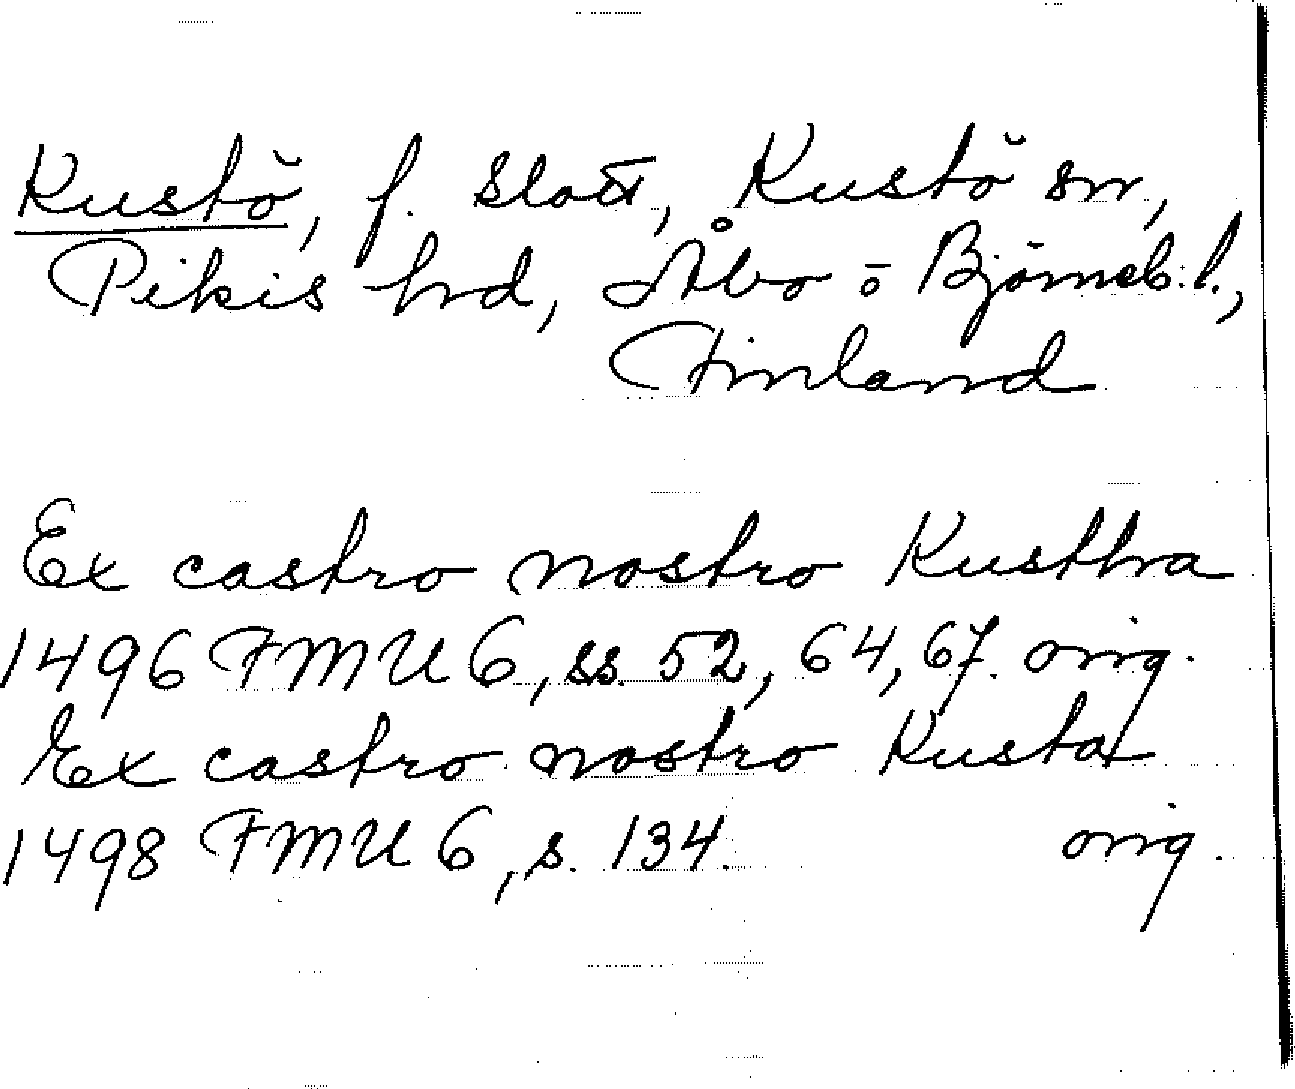 Kustö, f. slott, Kustö sn,
Pikis hd, Åbo o Björneb. l.,
Finland
Ex castro nostro Kusthra
1496 FMU 6, ss. 52, 64, 67. orig.
Ex castro nostro Kusta
1498 FMU 6, s. 134. orig.